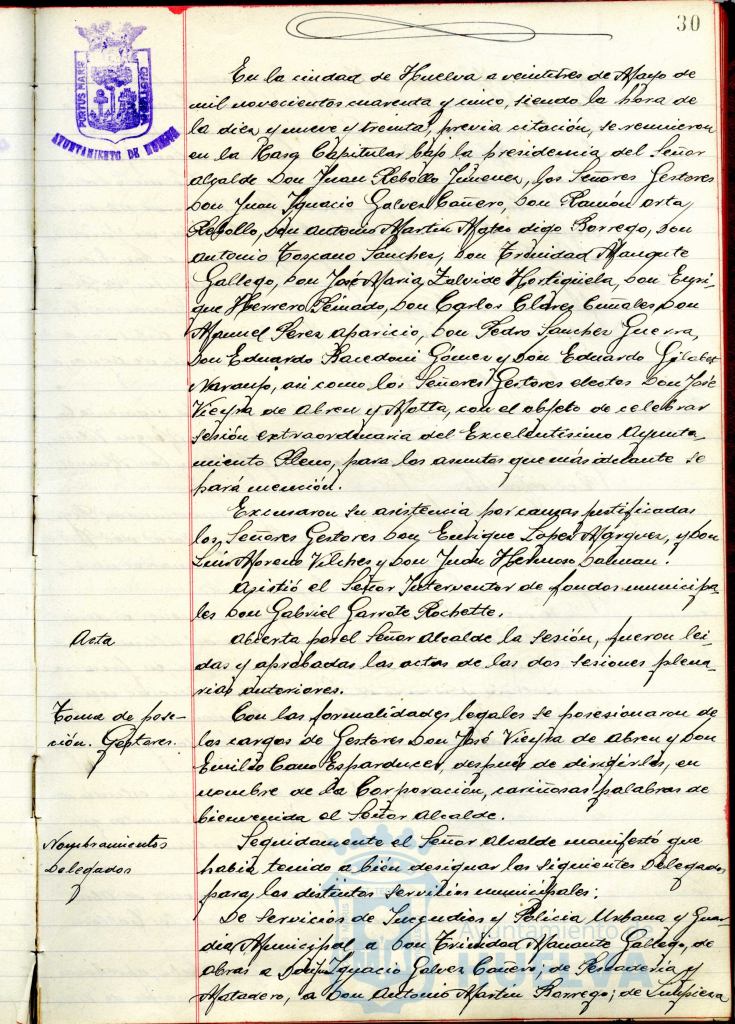 30
PORTUS MARIS
AYUNTAMIENTO DE HUELVA
En la ciudad de Huelva a veintitres de Mayo de
mil novecientos cuarenta y cinco, siendo la hora de
la diez y nueve y treinta, previa citación, se reunieron
en la Casa Capitular bajo la presidencia del Señor
Alcalde Don Juan Rebollo Jimenez, los Señores Gestores
Don Juan Ignacio Galvez Cañero, Don Ramón Orta
Rebollo, Don Antonio Martin Mateo digo Borrego, Don
Antonio Toscano Sanches, Don Trinidad Mangute
Gallego, Don José Maria Zalvide Hortigüela, Don Enri-
que Herrero Peinado, Don Carlos Cuñales, Don
Manuel Perez Aparicio, Don Pedro Sanchez Guerra,
Don Eduardo Racedoni Gómez y Don Eduardo Gilabet
Naranjo, asi como los Señores Gestores electos Don José
Vieyra de Abreu y Motta, con el objeto de celebrar
sesión extraordinaria del Excelentisimo Ayunta-
miento Pleno, para los asuntos que más adelante se
hará mención.
Excusaron su asistencia por causas justificadas
los Señores Gestores Don Enrique Lopez Marquez, y Don
Luis Moreno Vilches y Don Juan Hermoso
Asistió el Señor Interventor de fondos municipa-
les Don Gabriel Garrote Rochette.
Acta
Abierta por el Señor Alcalde la sesión, fueron lei-
das y aprobadas las actas de las dos sesiones plena-
rias anteriores.
Toma de pose-
ción. Gestores.
Con las formalidades legales se posesionaron de
los cargos de Gestores Don José Vieyra de Abreu y Don
Emilio Cano Esparducer, después de dirigirles, en
nombre de la Corporación, cariñosas palabras de
bienvenida el Señor Alcalde.
Nombramientos
Delegados
Seguidamente el Señor Alcalde manifestó que
habia tenido a bién designar los siguientes Delegados
para los distintos servicios municipales:
De Servicios de Incendios y Policia Urbana y Guar-
dia Municipal a Don Trinidad Manante Gallego, de
Obras a Don Juan Ignacio Galvez Cañero; de Pescaderia y
Matadero, a Don Antonio Martin Borrego; de Limpieza
Ayuntamiento de
HUELVA